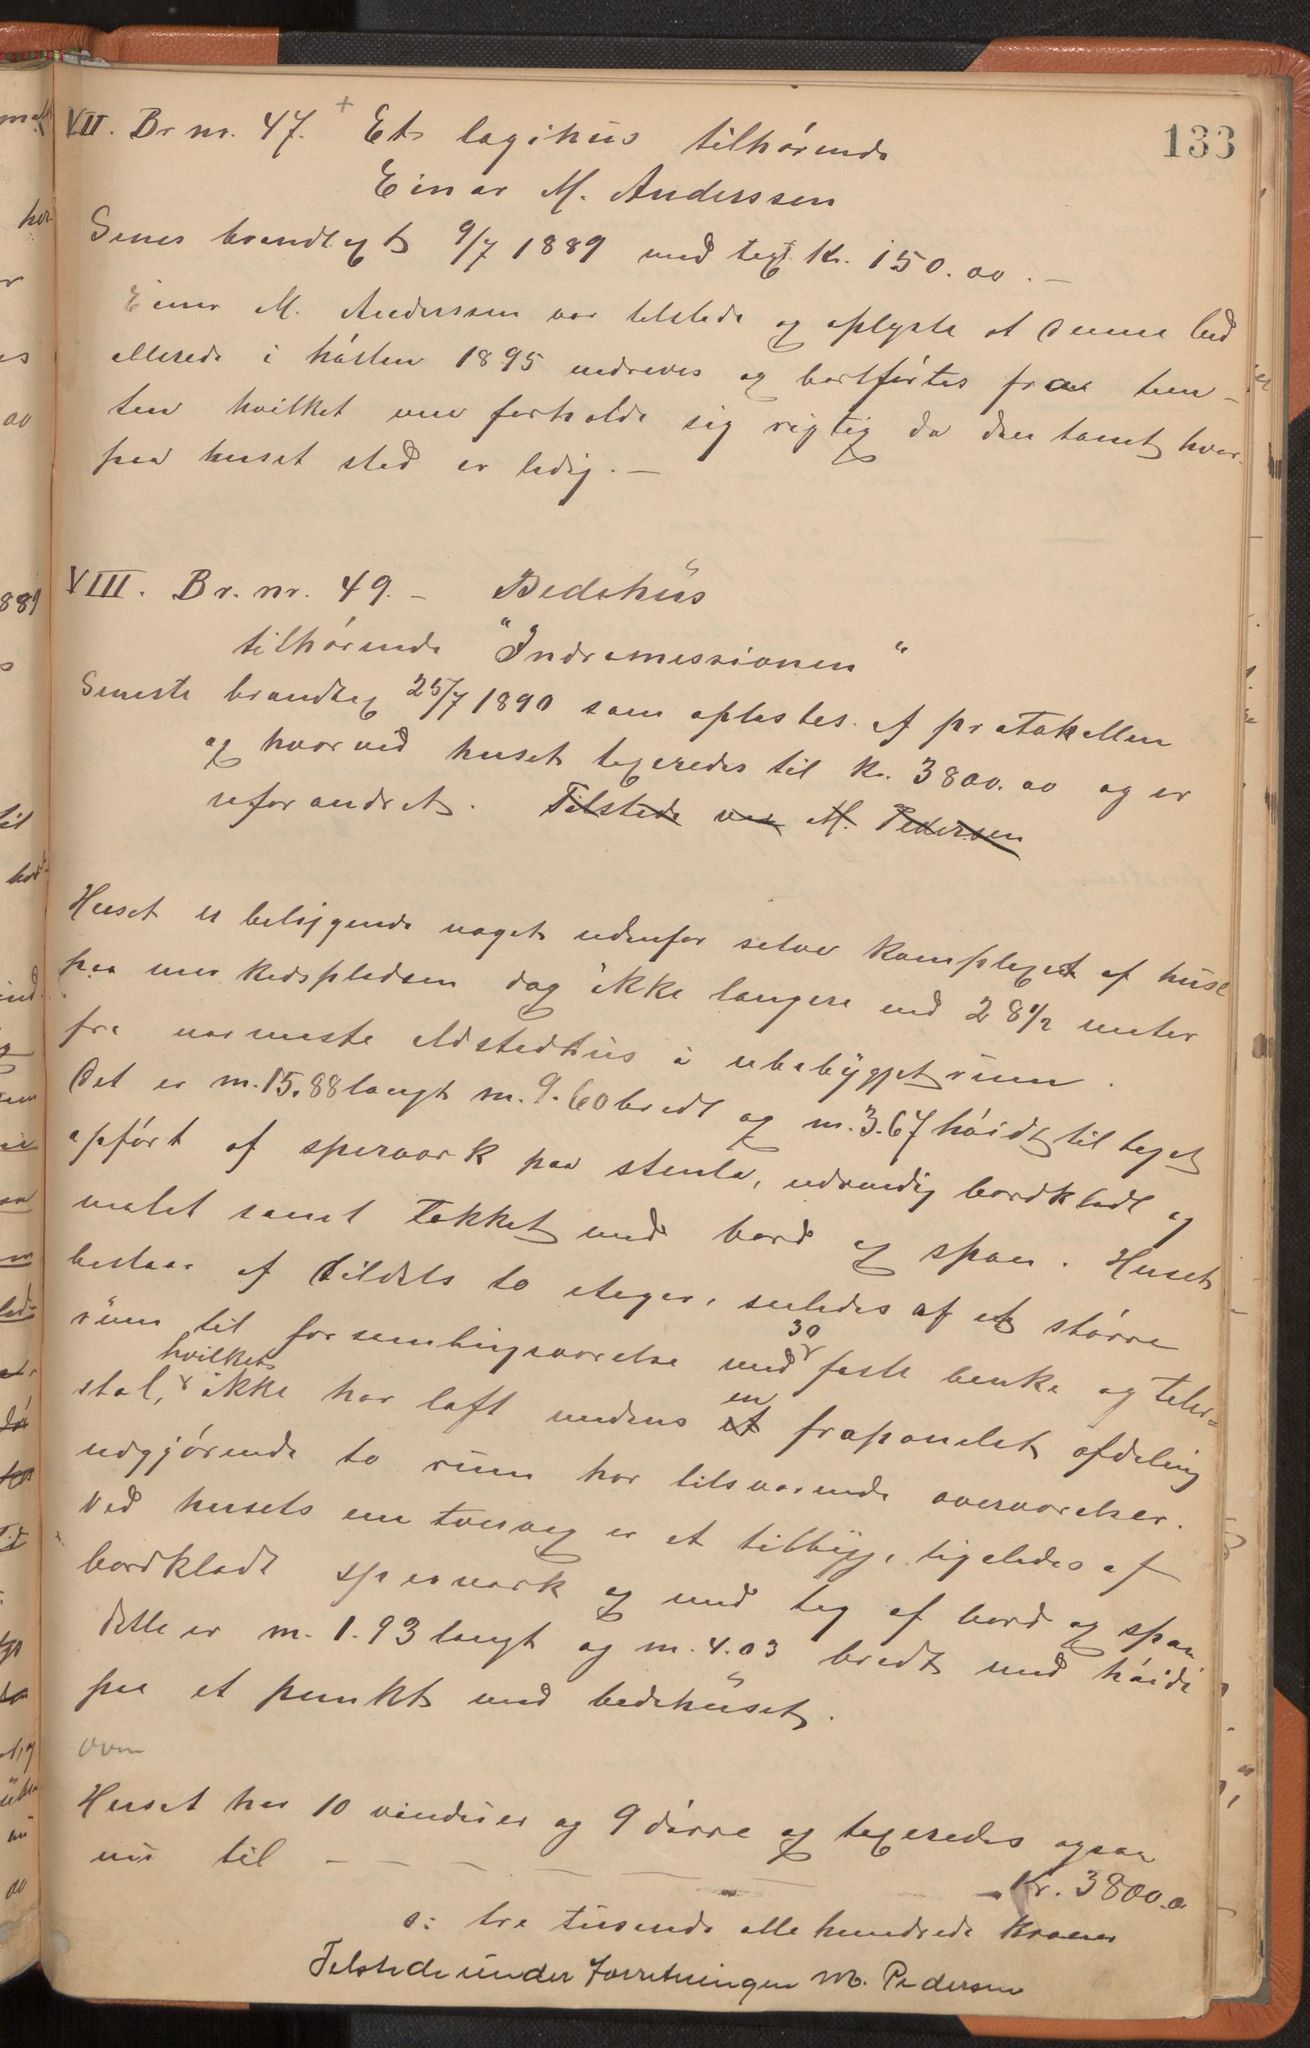 133
VII. Br nr. 47. + Et lagihus tilhørende
Einar M. Anderssen
Senes brandtaxt 9/7 1889 med taxt Kr. 150.00.—
Einar M. Anderssen var tilstede og oplyste at denne bod
allerede i høsten 1895 nedreves og bortførtes fra tom-
ten hvilket man forholde sig rigtig da den tomt hvor
paa huset stod er ledig.—
VIII. Br. nr. 49.— Bedehus
tilhørende "Indremissionen"
Seneste brandtax 25/7 1890 som oplæstes af protokollen
og hvorved huset taxeredes til Kr. 3800.00 og er
uforandret. Tilstede var M. Pedersen
Huset er beliggende noget udenfor selve komplexet af huse
paa markedspladsen dog ikke længere end 28 1/2 meter
fra nærmeste ildstedhus i ubebygget rum.
Det er m. 15.88 langt m. 9.60 bredt og m. 3.67 høidt til taget
opført af sperværk paa stenla, udvendig bordklædt og
malet samt tækket med bord og spon. Huset
bestaar af tildels to etager, saaledes af et større
rum til forsamlingsværelse med 30 faste benke og taler-
stol, hvilket ikke har loft medens en et frapanelet afdeling
udgjørende to rum har tilsvarende overværelser.
Ved husets ene tvervæg er et tilbyg, ligeledes af
bordklædt sperværk og med tag af bord og spon
dette er m. 1.93 langt og m. 4.03 bredt med høide
paa et punkt med bedehuset.
oven
Huset har 10 vinduer og 9 dørre og taxeredes ogsaa
nu til — — — — — — Kr. 3800.00
s: tre tusende otte hundrede Kroner
Tilstede under Forretningen M. Pedersen